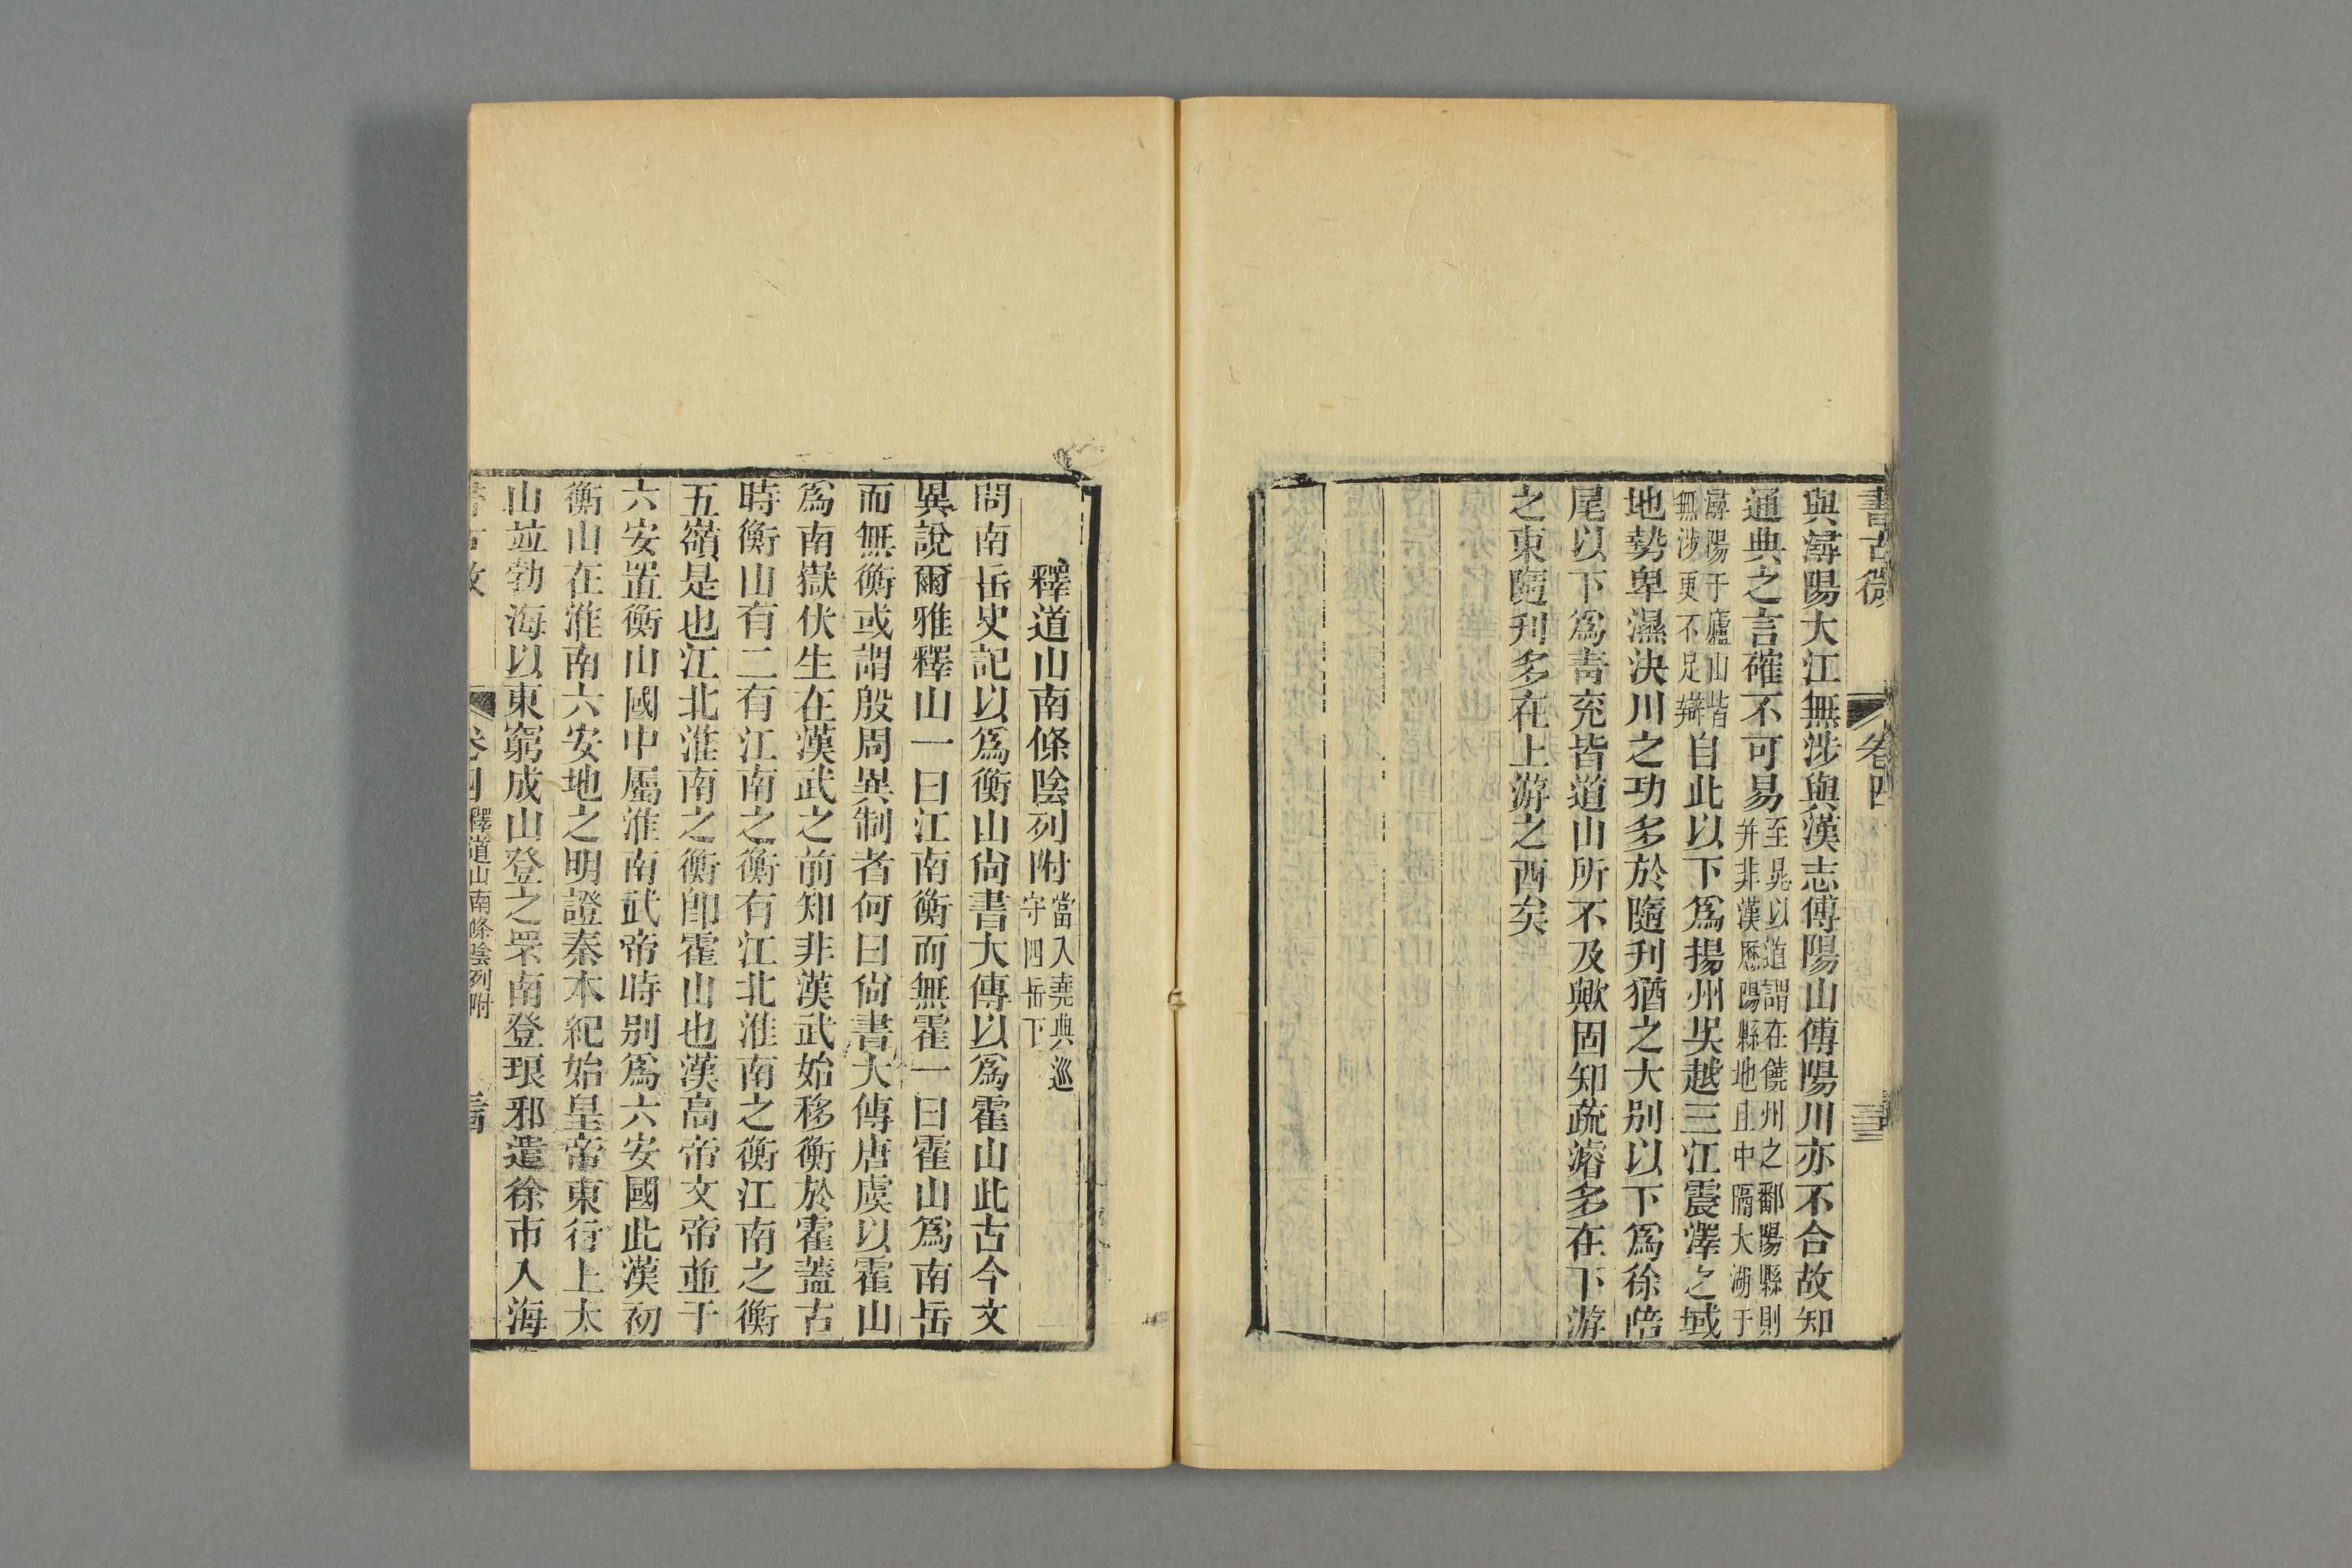 書古微 卷四
與潯陽大江無涉與漢志傅陽山傅陽川亦不合故知
通典之言確不可易至晁以道謂在饒州之鄱陽縣則并非漢歷陽縣地且中隔大湖于
潯陽于廬山皆無涉更不足辯自此以下爲揚州吳越三江震澤之域
地勢卑濕決川之功多於隨刋猶之大别以下爲徐
尾以下爲青兖皆道山所不及歟固知疏濬多在下游
之東隨刋多在上游之西矣
釋道山南條陰列附當入堯典巡守四岳下
問南岳史記以爲衡山尙書大傳以爲霍山此古今文
異說爾雅釋山一曰江南衡而無霍一曰霍山爲南岳
而無衡或謂殷周異制者何曰尙書大傳唐虞以霍山
爲南嶽伏生在漢武之前知非漢武始移衡於霍蓋古
時衡山有二有江南之衡有江北淮南之衡江南之衡
五嶺是也江北淮南之衡卽霍山也漢高帝文帝並于
六安置衡山國中屬淮南武帝時别爲六安國此漢初
衡山在淮南六安地之明證秦本紀始皇帝東行上太
山並勃海以東窮成山登之罘南登琅邪遣徐市入海
卷四 釋道山南條陰列附